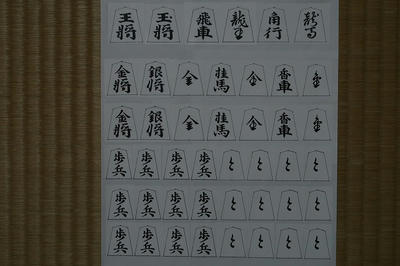 王將 玉將 飛車 龍王 角行 龍馬
金將 銀將 全 桂馬 今 香車 杏
金將 銀將 全 桂馬 今 香車 杏
歩兵 歩兵 歩兵 歩兵 と と と と
歩兵 歩兵 歩兵 歩兵 と と と と
歩兵 歩兵 歩兵 歩兵 と と と と